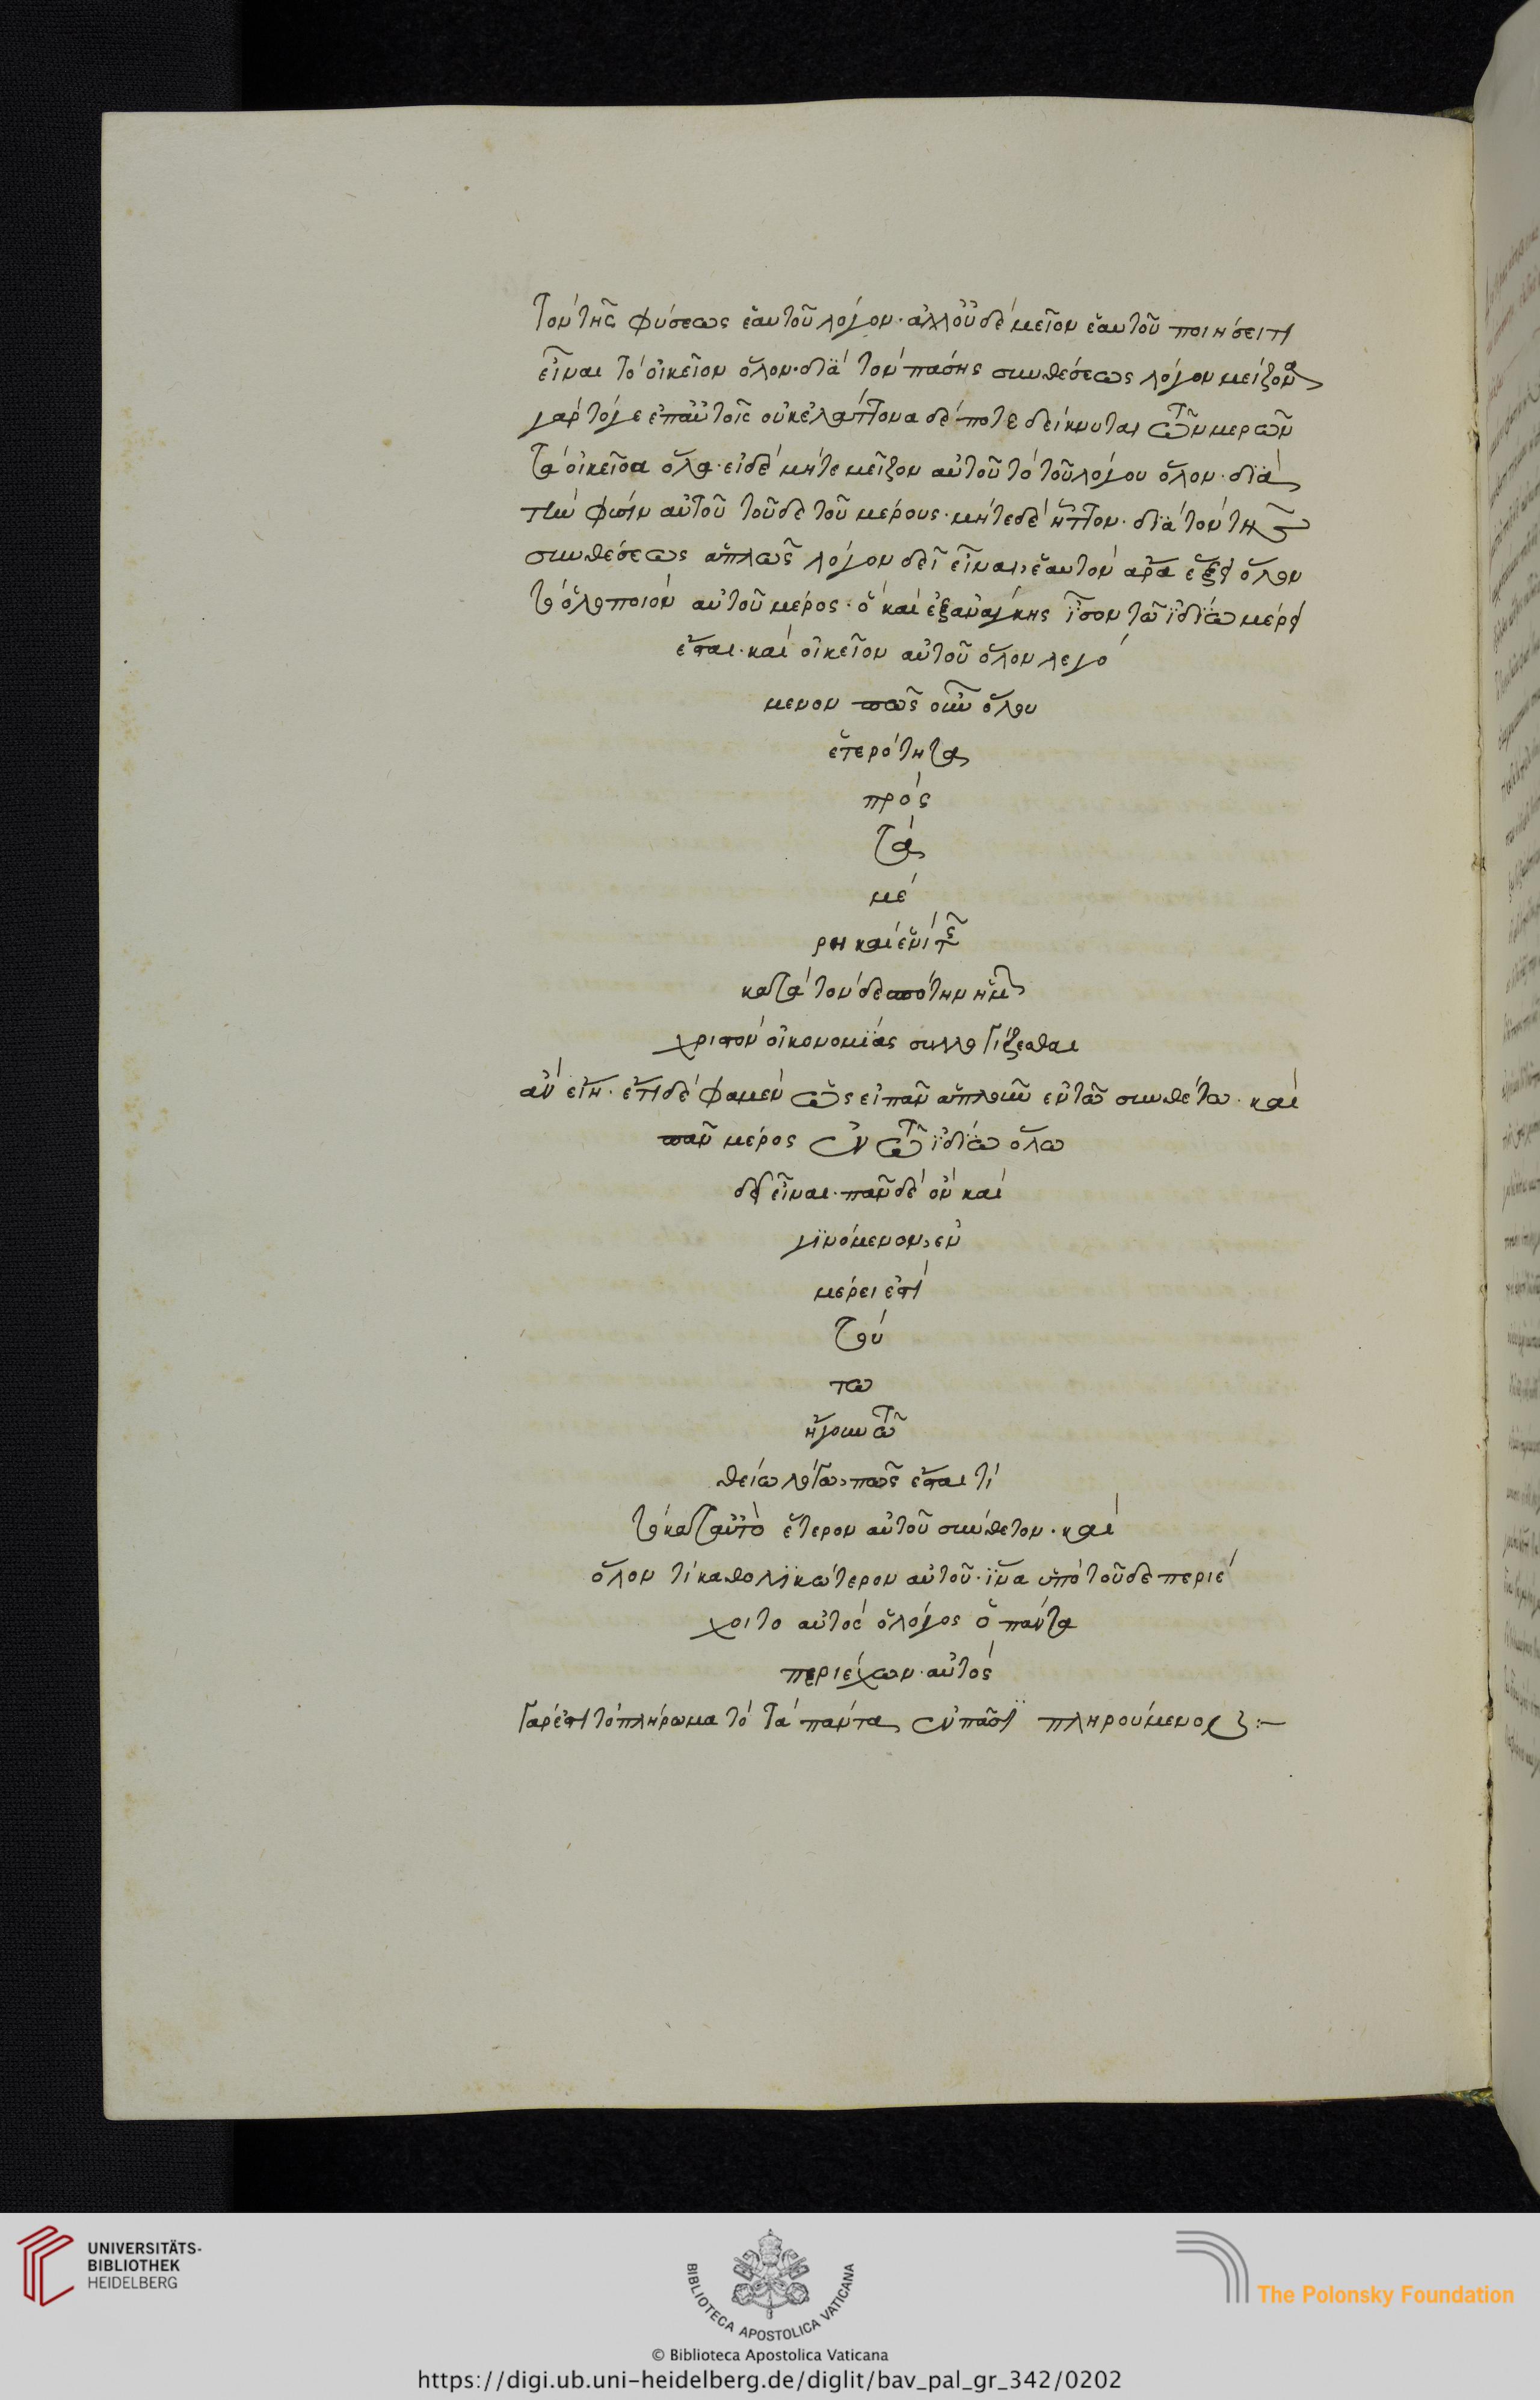 τὸν τῆς φύσεως ἑαυτοῦ λόγον· ἀλλ' οὐδὲ μεῖον ἑαυτοῦ ποιήσει τι
εἶναι τὸ οἰκεῖον ὅλον· διὰ τὸν πάσης συνθέσεως λόγον μείζονα
γάρ τοι γε ἐπ' αὐτοῖς οὐκ ἐλάττονα δέ ποτε δείκνυται τῶν μερῶν
τὰ οἰκεῖα ὅλα· εἰ δὲ μήτε μεῖζον αὐτοῦ τὸ τοῦ λόγου ὅλον· διὰ
τὴν φύσιν αὐτοῦ τοῦδε τοῦ μέρους· μήτε δὲ ἧττον· διὰ τὸν τῆς
συνθέσεως ἁπλῶς λόγον δεῖ εἶναι, ἑαυτὸν ἄρα ἕξει ὅλον
τὸ ὁλοποιὸν αὐτοῦ μέρος· ὃ καὶ ἐξ ἀνάγκης ἴσον τῶ ἰδίω μέρει
ἔσται· καὶ οἰκεῖον αὐτοῦ ὅλον λεγό
μενον πῶς οὖν ὅλου
ἑτερότητα
πρὸς
τὰ
μέ
ρη καὶ ἑνί της
κατὰ τὸν δεσπότην ἡμῶν
χριστὸν οἰκονομίας συλλογίζεσθαι
ἂν εἴη· ἔτι δὲ φαμὲν ὡς εἰ πᾶν ἁπλοῦν ἐν τῶ συνθέτω· καὶ
πᾶν μέρος ἐν τῶ ἰδίω ὅλω
δεῖ εἶναι· πᾶν δὲ ὂν καὶ
γινόμενον, ἐν
μέρει ἐστὶ
τού
τω
ἤγουν τῶ
θείω λόγω, πῶς ἔσται τί
τὸ κατ' αὐτὸ ἕτερον αὐτοῦ σύνθετον· καὶ
ὅλον τί καθολικώτερον αὐτοῦ· ἵνα ὑπὸ τοῦδε περιέ
χοιτο αὐτὸς ὁ λόγος ὁ πάντα
περιέχων· αὐτὸς
γάρ ἐστι τὸ πλήρωμα τὸ τὰ πάντα ἐν πᾶσι πληρούμενος :-
UNIVERSITÄTS-
BIBLIOTHEK
HEIDELBERG
BIBLIOTECA APOSTOLICA VATICANA
The Polonsky Foundation
© Biblioteca Apostolica Vaticana
https://digi.ub.uni-heidelberg.de/diglit/bav_pal_gr_342/0202